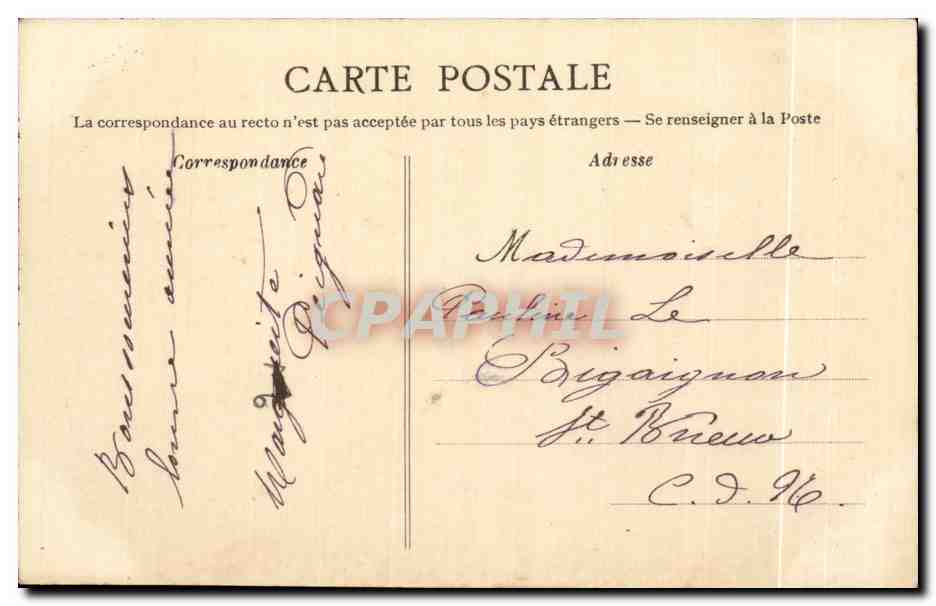 CARTE POSTALE
La correspondance au recto n'est pas acceptée par tous les pays étrangers — Se renseigner à la Poste
Correspondance
Bons souvenirs
bonne année
Marguerite
Adresse
Mademoiselle
Pauline Le
Bigaignon
St. Brieuc
C. d. N.
CPAPHIL